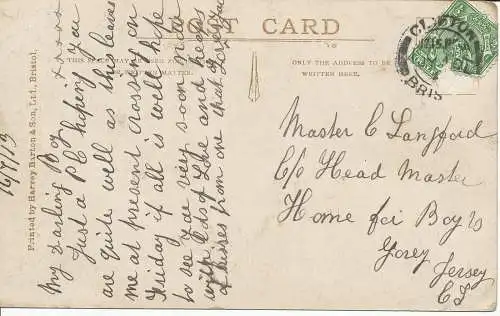 POST CARD
THIS SPACE MAY BE USED FOR
LETTER MATTER.
ONLY THE ADDRESS TO BE
WRITTEN HERE.
CLIFTON
BRIS
Printed by Harvey Barton & Son, Ltd., Bristol.
16/7/13
My Darling Boy xxxxx
Just a PC hoping you
are quite well as this leaves
me at present crossing on
Friday if all is well hope
to see you very soon now
with Lots of Love and heaps
of kisses from one that Loves you
Master C Langford
C/o Head Master
Home for Boys
Gorey
Jersey
CI